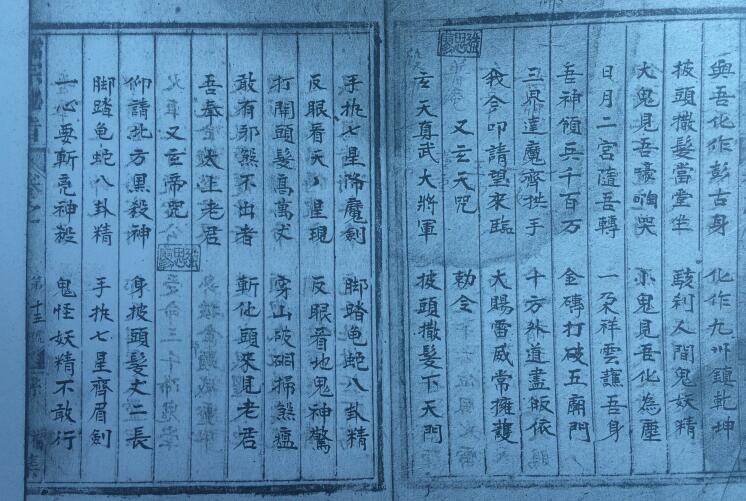 與吾化作彭古身 化作九州鎮乾坤
披頭撒髮當堂坐 駭利人間鬼妖精
大鬼見吾嚎啕哭 小鬼見吾化為塵
日月二宮隨吾轉 一朵祥雲護吾身
吾神領兵千百万 金磚打破五廟門
三界達魔齊拱手 十方外道盡皈依
我今叩請望來臨 大賜雷威常擁護
又玄天咒 勅令
玄天真武大將軍 披頭撒髮下天門
手执七星降魔劍 脚踏龟蛇八卦精
反眼看天天星現 反眼看地鬼神驚
打開頭髮高萬丈 穿山破硐掃煞瘟
敢有邪煞不出者 斬他頭來見老君
吾奉太上老君
又玄帝咒
仰請北方黑殺神 身披頭髮丈二長
脚踏龟蛇八卦精 手执七星齊眉劍
一心要斬 神 鬼怪妖精不敢行
第十五